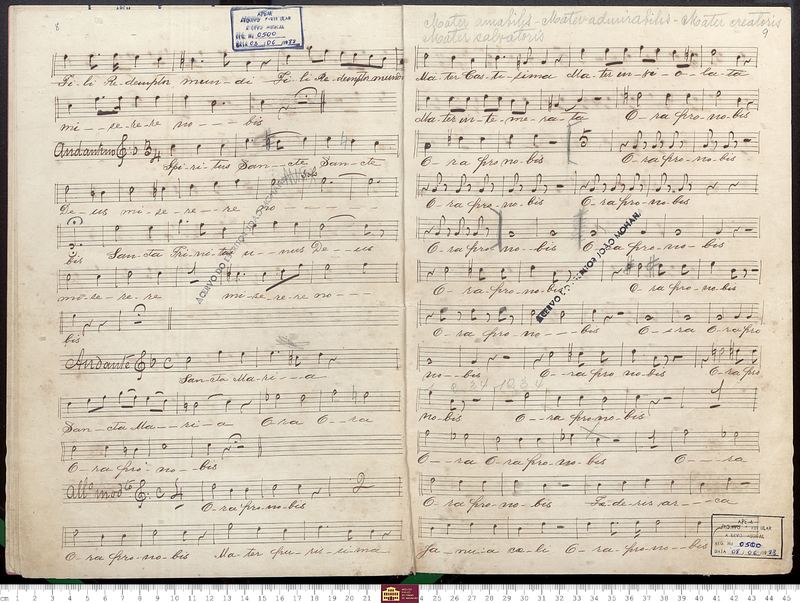 8
APEM
ARQUIVO PARTICULAR
ACERVO MUSICAL
REG Nº 0500
DATA 08 06
Fi-li Re-demptor mun-di Fi-li Re-demptor mundi
mi-se-re-re no-bis
Andantino
Spi-ri-tus San-cte San-cte
Solo
De-us mi-se-re-re no
bis San-cta Tri-ni-tas u-nus De-us
mi-se-re-re mi-se-re-re no
bis
Andante C
San-cta Ma-ri-a
San-cta Ma-ri-a O-ra O-ra
O-ra pro-no-bis
Allº modto C
O-ra pro-no-bis
2
O-ra pro-no-bis Ma-ter pu-ris-si-ma
Mater amabilis - Mater admirabilis - Mater creatoris
Mater salvatoris
9
Ma-ter Cas-tis-sima Ma-ter in-vi-o-la-ta
Ma-ter in-te-me-ra-ta O-ra pro-no-bis
O-ra pro-no-bis O-ra pro-no-bis
O-ra pro-no-bis O-ra pro-no-bis
O-ra pro-no-bis O-ra pro-no-bis
O-ra-pro-no-bis O-ra pro-no-bis
O-ra pro-no-bis O-ra O-ra pro
no-bis O-ra pro-no-bis O-ra pro
no-bis O-ra pro-no-bis
O-ra O-ra pro-no-bis O-ra
O-ra pro-no-bis Fæ-de-ris ar-ca
Ja-nu-a cœ-li O-ra-pro-no-bis
ACERVO DO
JOÃO MOHANA
ACERVO
JOÃO MOHANA
APEM
ARQUIVO PARTICULAR
ACERVO MUSICAL
REG Nº 0500
DATA 08 06
cm 1 2 3 4 5 6 7 8 9 10 11 12 13 14 15 16 17 18 19 20 21 24 25 26 27 28 29 30 31 32 33 34 35 36 37 38 39 40 41 42 43 44 45